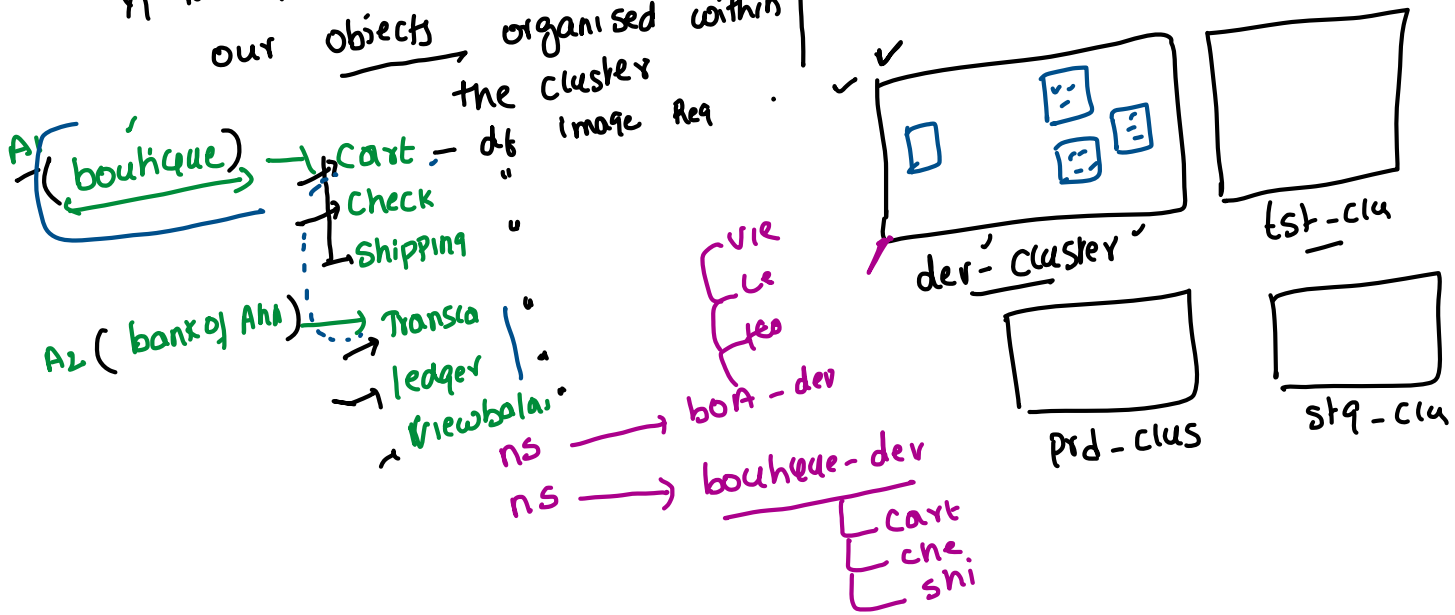 our objects organised within
the cluster
A1 (boutique) cart - df image Req
check "
shipping "
A2 (bank of Aha) Transca "
ledger
viewbala.
ns boA - dev
vie
le
ns boutique - dev
cart
che
shi
dev - cluster
tst - clu
prd - clus
stg - clu